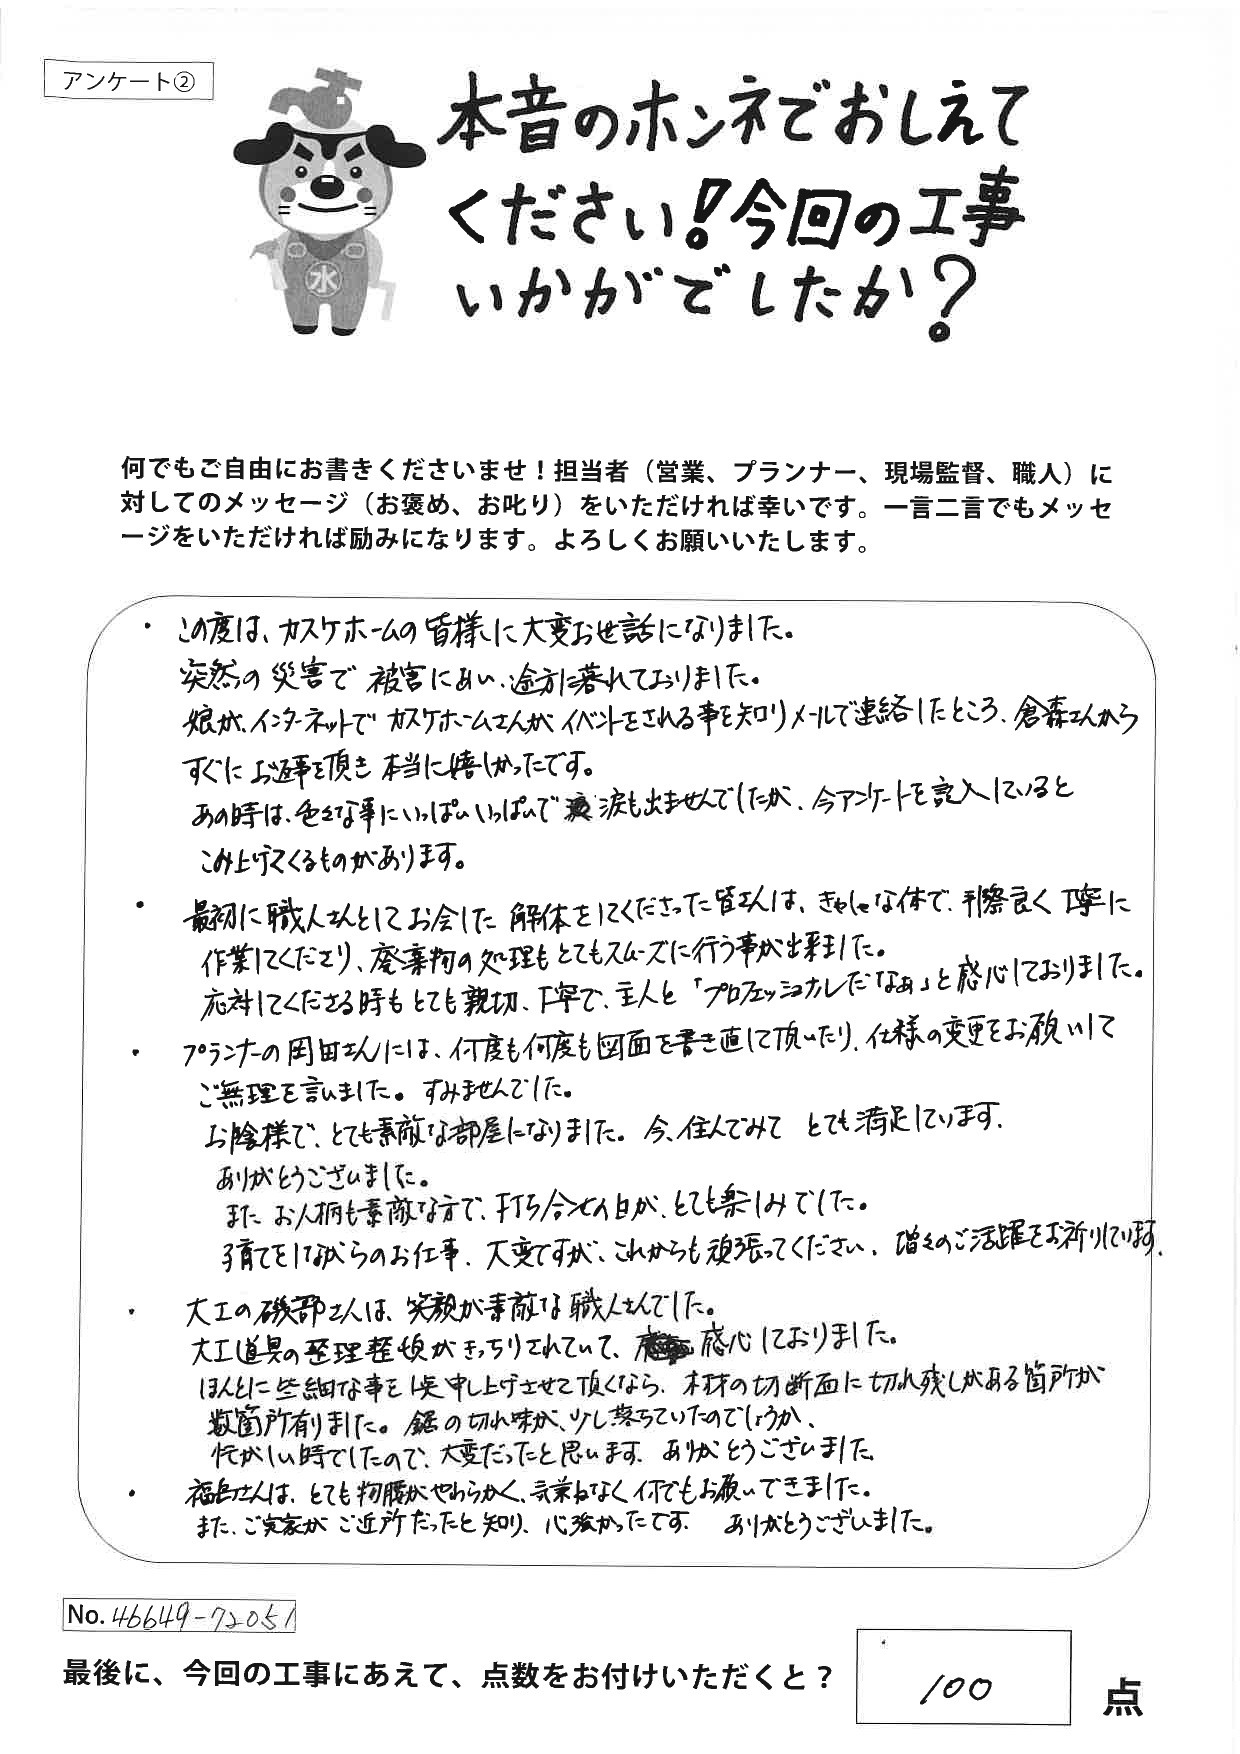 アンケート②
本音のホンネでおしえて
ください!今回の工事
いかがでしたか?
水
何でもご自由にお書きくださいませ！担当者（営業、プランナー、現場監督、職人）に
対してのメッセージ（お褒め、お叱り）をいただければ幸いです。一言二言でもメッセ
ージをいただければ励みになります。よろしくお願いいたします。
・この度は、カスケホームの皆様に大変お世話になりました。
突然の災害で被害にあい、途方に暮れておりました。
娘が、インターネットでカスケホームさんがイベントをされる事を知りメールで連絡したところ、倉森さんから
すぐにお返事を頂き本当に嬉しかったです。
あの時は、色々な事にいっぱいいっぱいで涙も出ませんでしたが、今アンケートを記入していると
こみ上げてくるものがあります。
・最初に職人さんとしてお会した解体をしてくださった皆さんは、きゃしゃな体で、手際良く丁寧に
作業してくださり、廃棄物の処理もとてもスムーズに行う事が出来ました。
応対してくださる時もとても親切、丁寧で、主人と「プロフェッショナルだなぁ」と感心しておりました。
・プランナーの岡田さんには、何度も何度も図面を書き直して頂いたり、仕様の変更をお願いして
ご無理を言いました。すみませんでした。
お陰様で、とても素敵な部屋になりました。今、住んでみてとても満足しています。
ありがとうございました。
またお人柄も素敵な方で、打ち合せの日が、とても楽しみでした。
子育てをしながらのお仕事、大変ですが、これからも頑張ってください。増々のご活躍をお祈りしています。
・大工の磯部さんは、笑顔が素敵な職人さんでした。
大工道具の整理整頓がきっちりされていて、感心しておりました。
ほんとに些細な事を申し上げさせて頂くなら、木材の切断面に切れ残しがある箇所が
数箇所有りました。鋸の切れ味が、少し落ちていたのでしょうか、
忙がしい時でしたので、大変だったと思います。ありがとうございました。
・福島さんは、とても物腰がやわらかく、気兼ねなく何でもお願いできました。
また、ご実家がご近所だったと知り、心強かったです。ありがとうございました。
No. 46649-72051
最後に、今回の工事にあえて、点数をお付けいただくと？
100
点